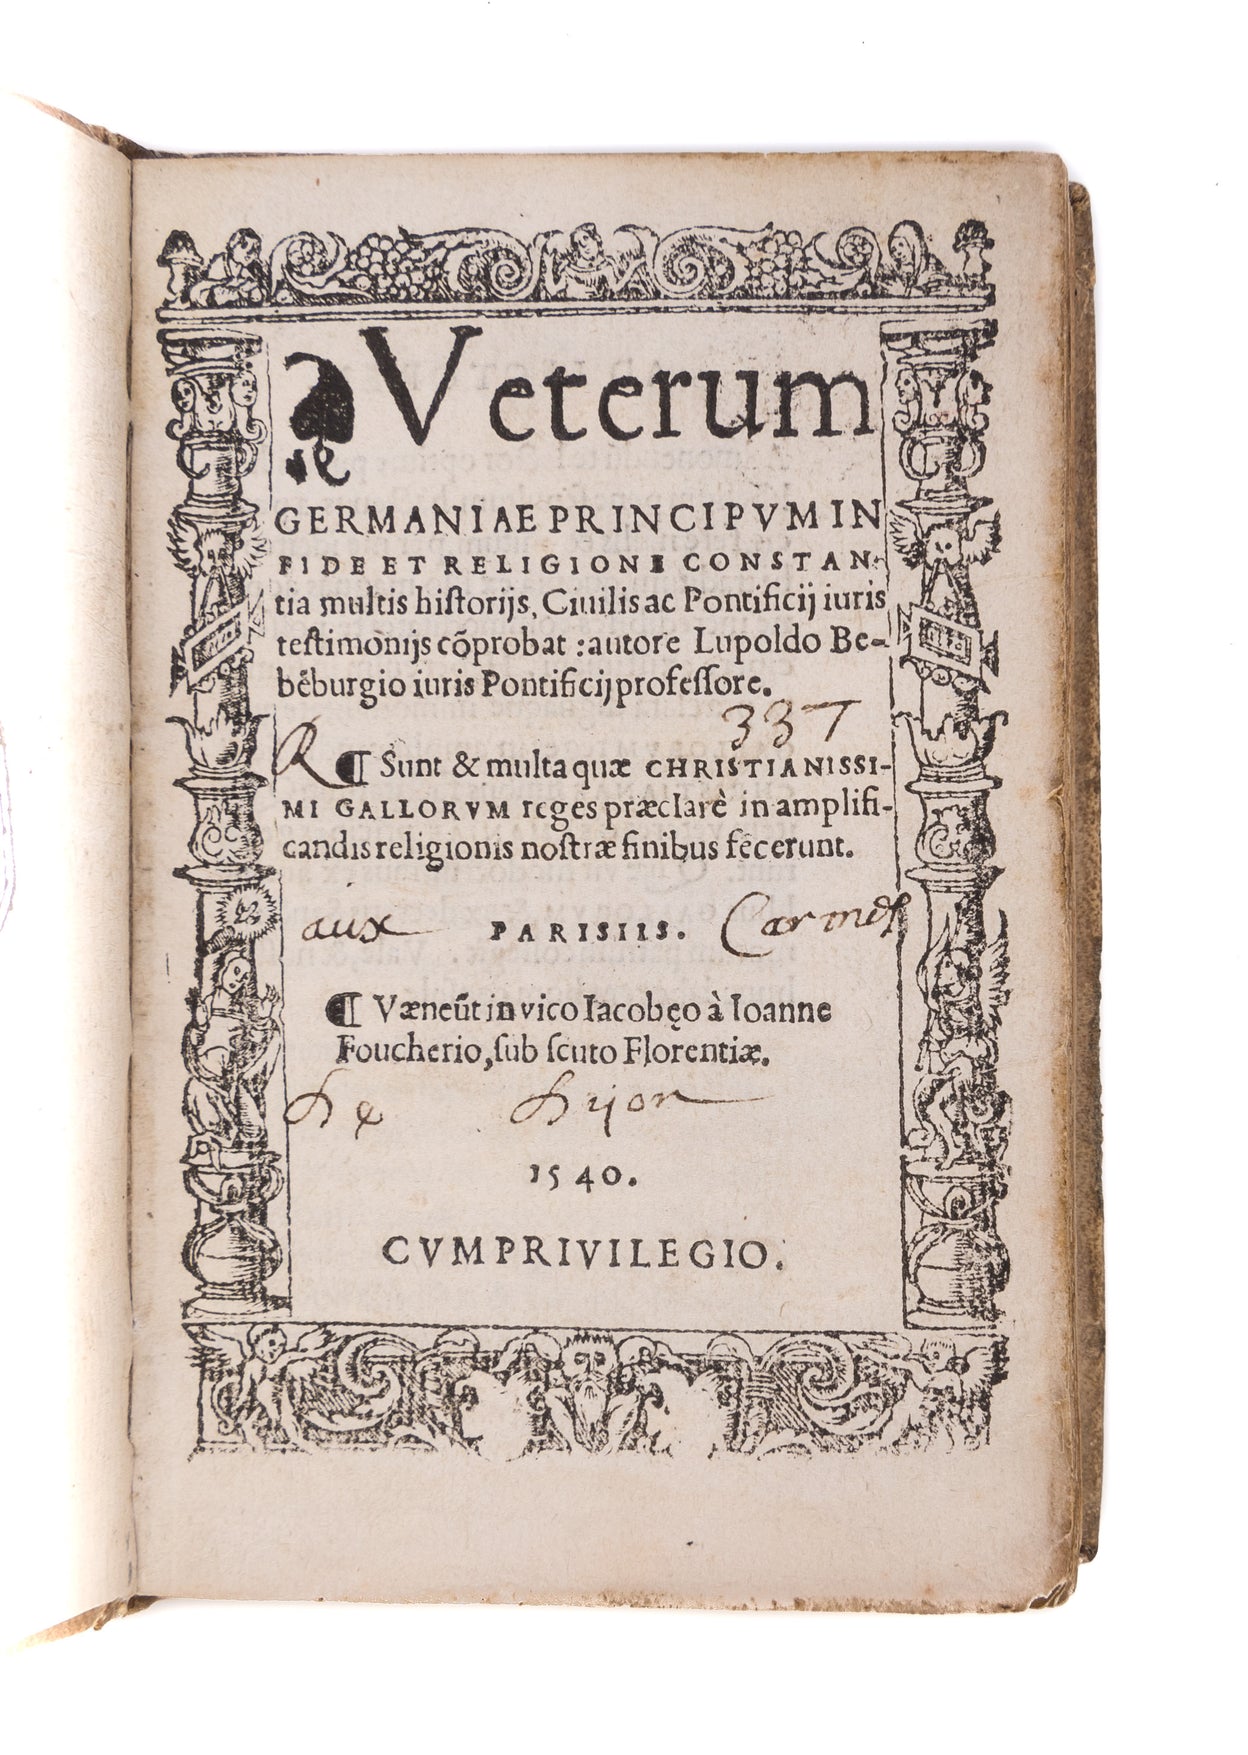 ❧ Veterum
GERMANIAE PRINCIPVM IN
FIDE ET RELIGIONE CONSTAN-
tia multis historijs, Ciuilis ac Pontificij iuris
testimonijs cõprobat : autore Lupoldo Be-
bẽburgio iuris Pontificij professore.
337
R ¶ Sunt & multa quæ CHRISTIANISSI-
MI GALLORVM reges præclarè in amplifi-
candis religionis nostræ finibus fecerunt.
aux PARISIIS. Carmes
¶ Væneũt in vico Iacobęo à Ioanne
Foucherio, sub scuto Florentiæ.
De Dijon
1540.
CVM PRIVILEGIO.